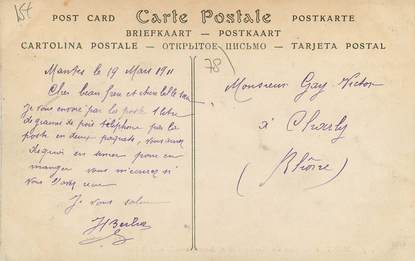 15f
POST CARD Carte Postale POSTKARTE
BRIEFKAART — POSTKAART
CARTOLINA POSTALE — ОТКРЫТОЕ ПИСЬМО — TARJETA POSTAL
78
Mantes le 19 Mars 1911
Cher beau frère et
Je vous envoie par la poste 1 litre
de graines de pois téléphone par la
poste en deux paquets, vous aurez
de quoi en semer pour en
manger vous m'écrirez si
vous l'avez reçu
Je vous salue
Monsieur Gay Victor
à
(Rhône)